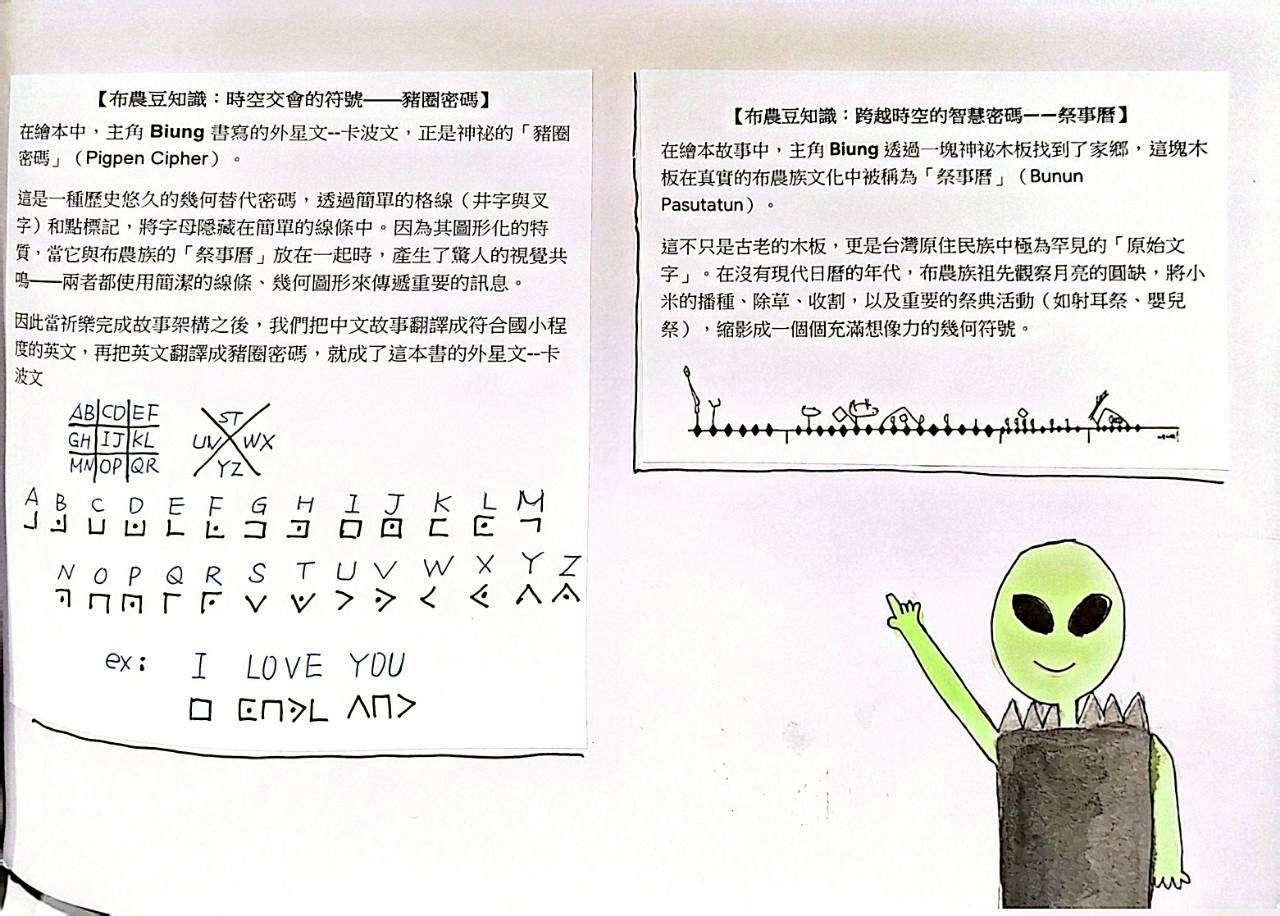 【布農豆知識：時空交會的符號——豬圈密碼】
在繪本中，主角 Biung 書寫的外星文--卡波文，正是神祕的「豬圈
密碼」（Pigpen Cipher）。
這是一種歷史悠久的幾何替代密碼，透過簡單的格線（井字與叉
字）和點標記，將字母隱藏在簡單的線條中。因為其圖形化的特
質，當它與布農族的「祭事曆」放在一起時，產生了驚人的視覺共
鳴——兩者都使用簡潔的線條、幾何圖形來傳遞重要的訊息。
因此當祈樂完成故事架構之後，我們把中文故事翻譯成符合國小程
度的英文，再把英文翻譯成豬圈密碼，就成了這本書的外星文--卡
波文
AB CD EF
GH IJ KL
MN OP QR
ST
UV WX
YZ
A B C D E F G H I J K L M
N O P Q R S T U V W X Y Z
ex: I LOVE YOU
【布農豆知識：跨越時空的智慧密碼——祭事曆】
在繪本故事中，主角 Biung 透過一塊神祕木板找到了家鄉，這塊木
板在真實的布農族文化中被稱為「祭事曆」（Bunun
Pasutatun）。
這不只是古老的木板，更是台灣原住民族中極為罕見的「原始文
字」。在沒有現代日曆的年代，布農族祖先觀察月亮的圓缺，將小
米的播種、除草、收割，以及重要的祭典活動（如射耳祭、嬰兒
祭），縮影成一個個充滿想像力的幾何符號。